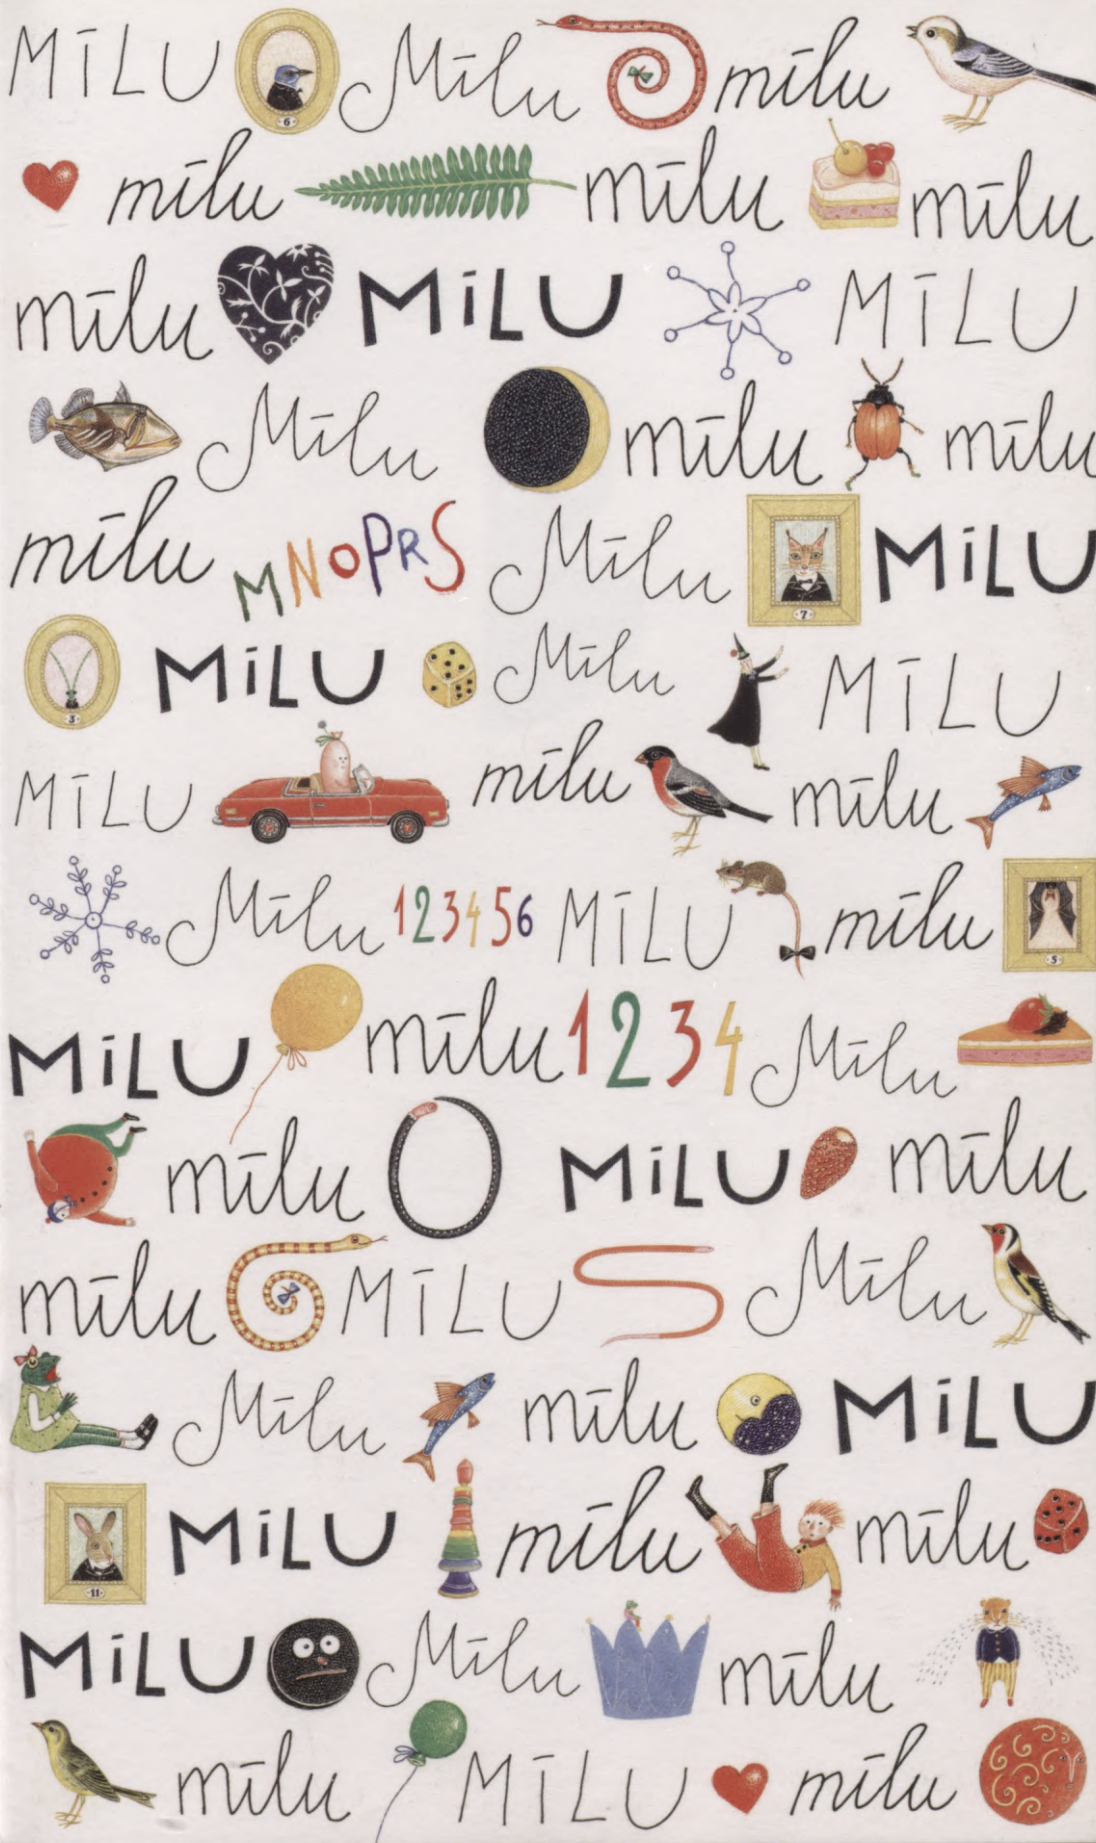 MĪLU 6 Mīlu mīlu
mīlu mīlu mīlu
mīlu MĪLU MĪLU
Mīlu mīlu mīlu
mīlu MNOPRS Mīlu 7 MĪLU
3 MĪLU Mīlu MĪLU
MĪLU mīlu mīlu
Mīlu 123456 MĪLU mīlu 5
MĪLU mīlu 1234 Mīlu
mīlu MĪLU mīlu
mīlu MĪLU Mīlu
Mīlu mīlu MĪLU
11 MĪLU mīlu mīlu
MĪLU Mīlu mīlu
mīlu MĪLU mīlu